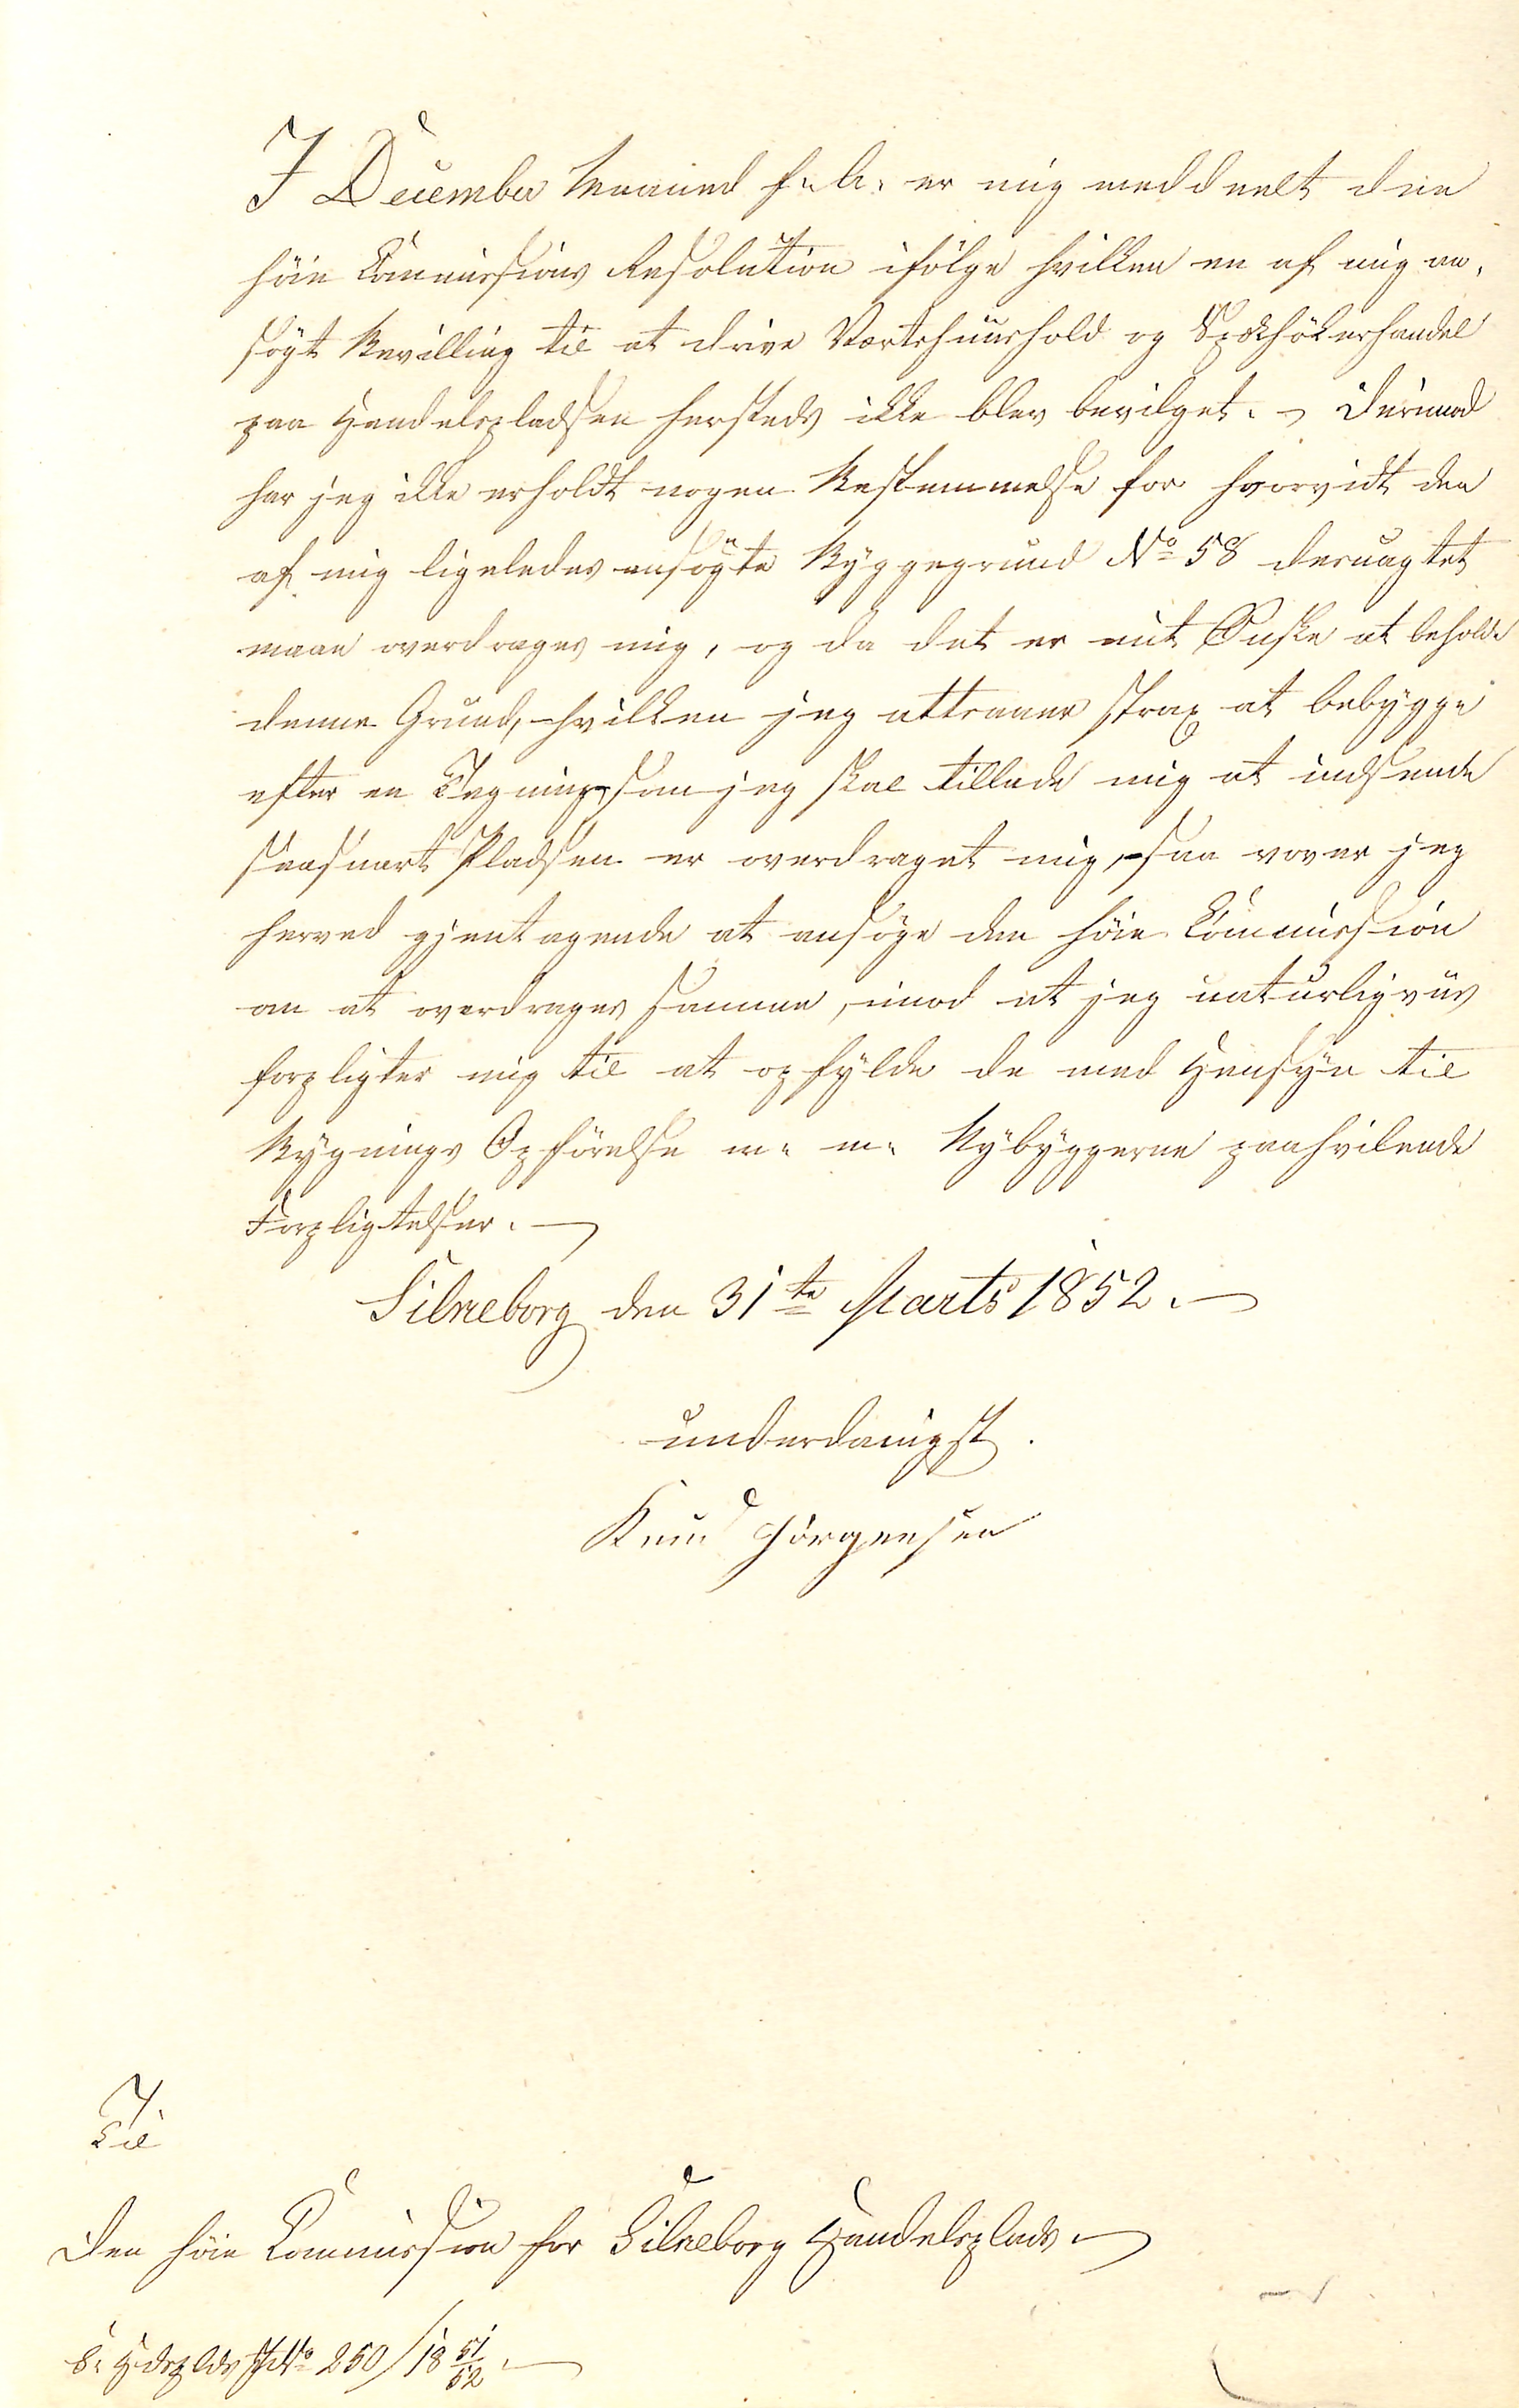 I December Maaned f. A. er mig meddeelt den
höie Commissions Resolution ifölge hvilken en af mig an,
sögt Bevilling til at drive Værtshuushold og Spækhökerhandel
paa Handelspladsen hersteds ikke blev bevilget. – Derimod
har jeg ikke erholdt nogen Bestemmelse for hvorvidt den
af mig ligeledes ansögte Byggegrund No 58 desuagtet
maae overdrages mig, og da det er mit Önske at beholde
denne Grund, hvilken jeg attraaer strax at bebygge
efter en Tegning, som jeg skal tillade mig at indsende
saasnart Pladsen er overdraget mig, – saa vover jeg
herved gjentagende at ansöge den höie Commission
om at overdrages samme, imod at jeg naturligviis
forpligter mig til at opfylde de med Hensyn til
Bygnings Opförelse m. m. Nybyggerne paahvilende
Forpligtelser. –
Silkeborg den 31te Marts 1852. –
underdanigst.
Knud Jörgensen
Til
Den höie Commission for Silkeborg Handelsplads. –
S. Hdsplds JNo 250/18 51/52. –